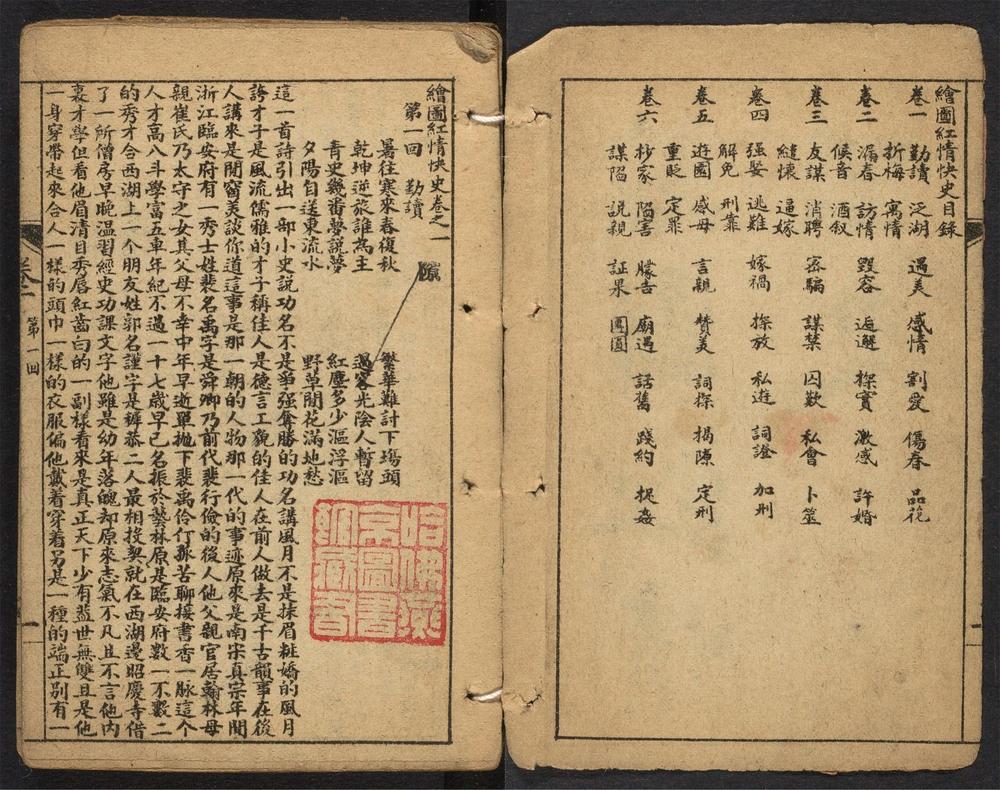 繪圖紅情快史目錄
卷一 勤讀 泛湖 遇美 感情 割愛 傷春 品花
折梅 寓情
卷二 漏春 訪情 毀容 逅邂 探實 激感 許婚
候音 酒叙
卷三 友謀 消聘 密騙 謀禁 囚歎 私會 卜筮
縫懷 逼嫁
卷四 强娶 逃難 嫁禍 探放 私逰 詞證 加刑
解免 刑靠
卷五 遊園 感母 言親 賛美 詞探 揭隙 定刑
重貶 定罪
卷六 抄家 陷害 朦告 廟遇 話舊 踐約 捉姦
謀陷 説親 証果 團圓
繪圖紅情快史卷之一
第一回 勤讀
暑往寒來春復秋 繁華難討下塲頭
乾坤逆旅誰為主 過客光陰人暫留
青史幾番夢説夢 紅塵多少漚浮漚
夕陽自送東流水 野草閒花滿地愁
這一首詩引出一部小史説功名不是爭强奪勝的功名講風月不是抹眉粧嬌的風月
誇才子是風流儒雅的才子稱佳人是德言工貌的佳人在前人做去是千古韻事在後
人講來是閒窗美談你道這事是那一朝的人物那一代的事迹原來是南宋真宗年間
浙江臨安府有一秀士姓裴名禹字是舜卿乃前代裴行儉的後人他父親官居翰林母
親崔氏乃太守之女其父母不幸中年早逝單抛下裴禹伶仃孤苦聊接書香一脉這个
人才高八斗學富五車年紀不過一十七歲早已名振於藝林原是臨安府數一不數二
的秀才合西湖上一个朋友姓郭名謹字是耨恭二人最相投契就在西湖邊昭慶寺借
了一所僧房早晚温習經史功課文字他雖是幼年落魄却原來志氣不凡且不言他内
裏才學但看他眉清目秀唇紅齒白的一副様看來是真正天下少有盖世無雙且是他
一身穿帶起來合人一樣的頭巾一樣的衣服偏他戴着穿着另是一種的端正别有一
卷一 第一回 一
哈佛燕京圖書館藏書